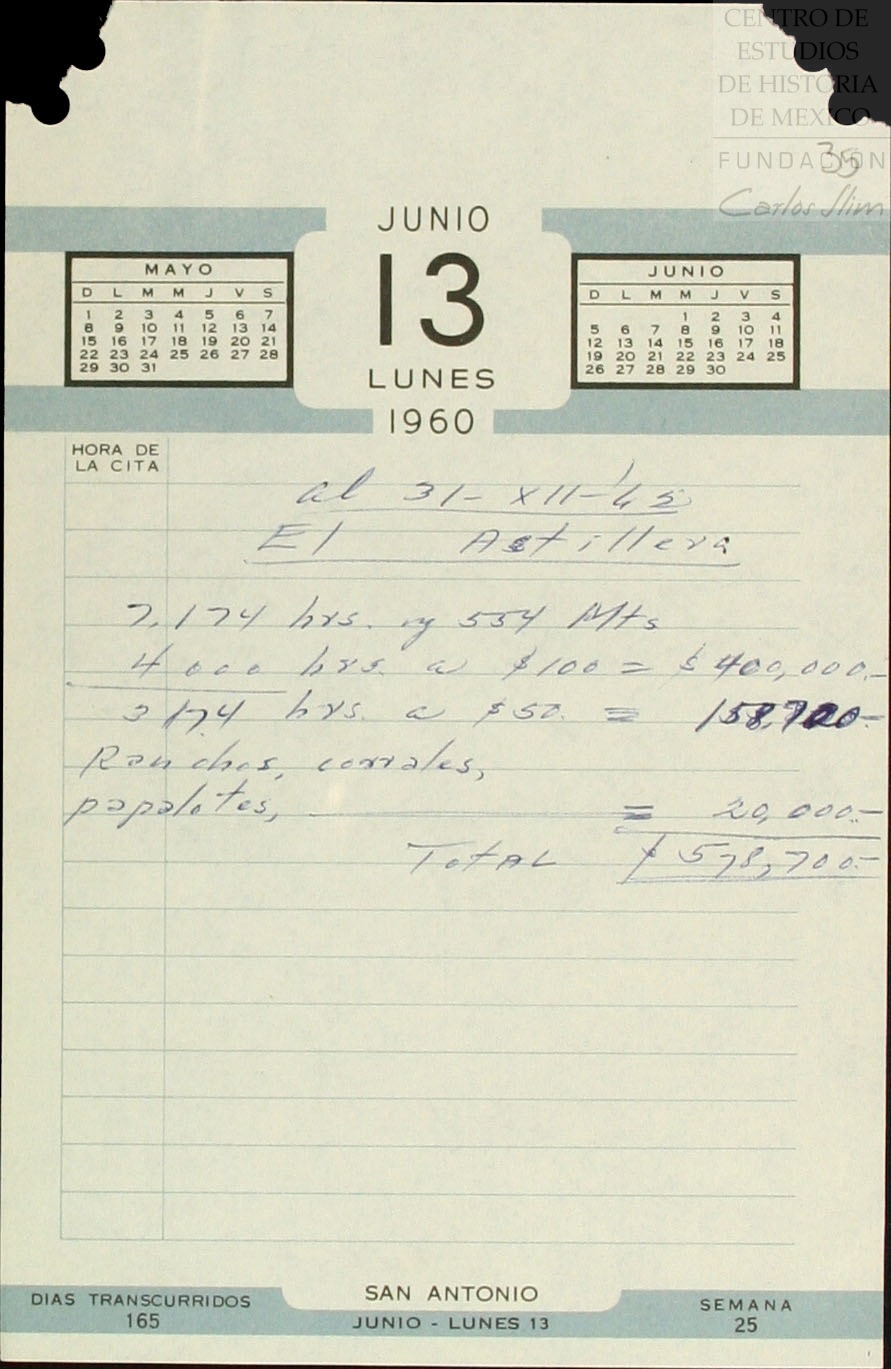 CENTRO DE
ESTUDIOS
DE HISTORIA
DE MEXICO
FUNDACIÓN
Carlos Slim
35
JUNIO
13
LUNES
1960
MAYO
D L M M J V S
1 2 3 4 5 6 7
8 9 10 11 12 13 14
15 16 17 18 19 20 21
22 23 24 25 26 27 28
29 30 31
JUNIO
D L M M J V S
1 2 3 4
5 6 7 8 9 10 11
12 13 14 15 16 17 18
19 20 21 22 23 24 25
26 27 28 29 30
HORA DE
LA CITA
al 31-XII-62
El Astillera
7,174 hrs. y 554 Mts
4 000 hrs. a $100 = $400,000.-
3 174 hrs. a $50. = 158,700-
Ranchos, corrales,
papalotes, = 20,000.-
TotAL $578,700.-
DIAS TRANSCURRIDOS
165
SAN ANTONIO
JUNIO - LUNES 13
SEMANA
25